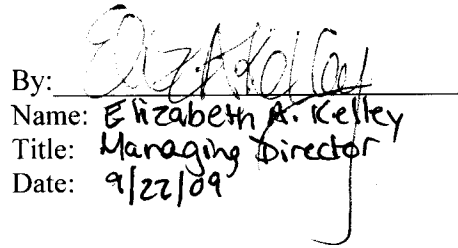 By: Eliz. A. Kelley
Name: Elizabeth A. Kelley
Title: Managing Director
Date: 9/22/09